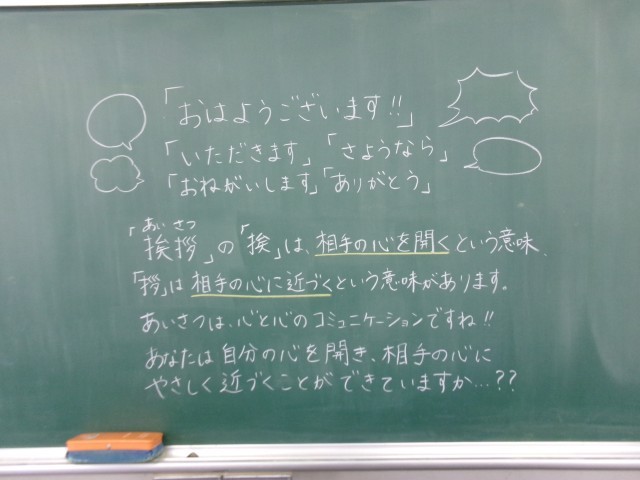 「おはようございます!!」
「いただきます」「さようなら」
「おねがいします」「ありがとう」
あい さつ
「挨拶」の「挨」は、相手の心を開くという意味、
「拶」は相手の心に近づくという意味があります。
あいさつは、心と心のコミュニケーションですね!!
あなたは自分の心を開き、相手の心に
やさしく近づくことができていますか…??